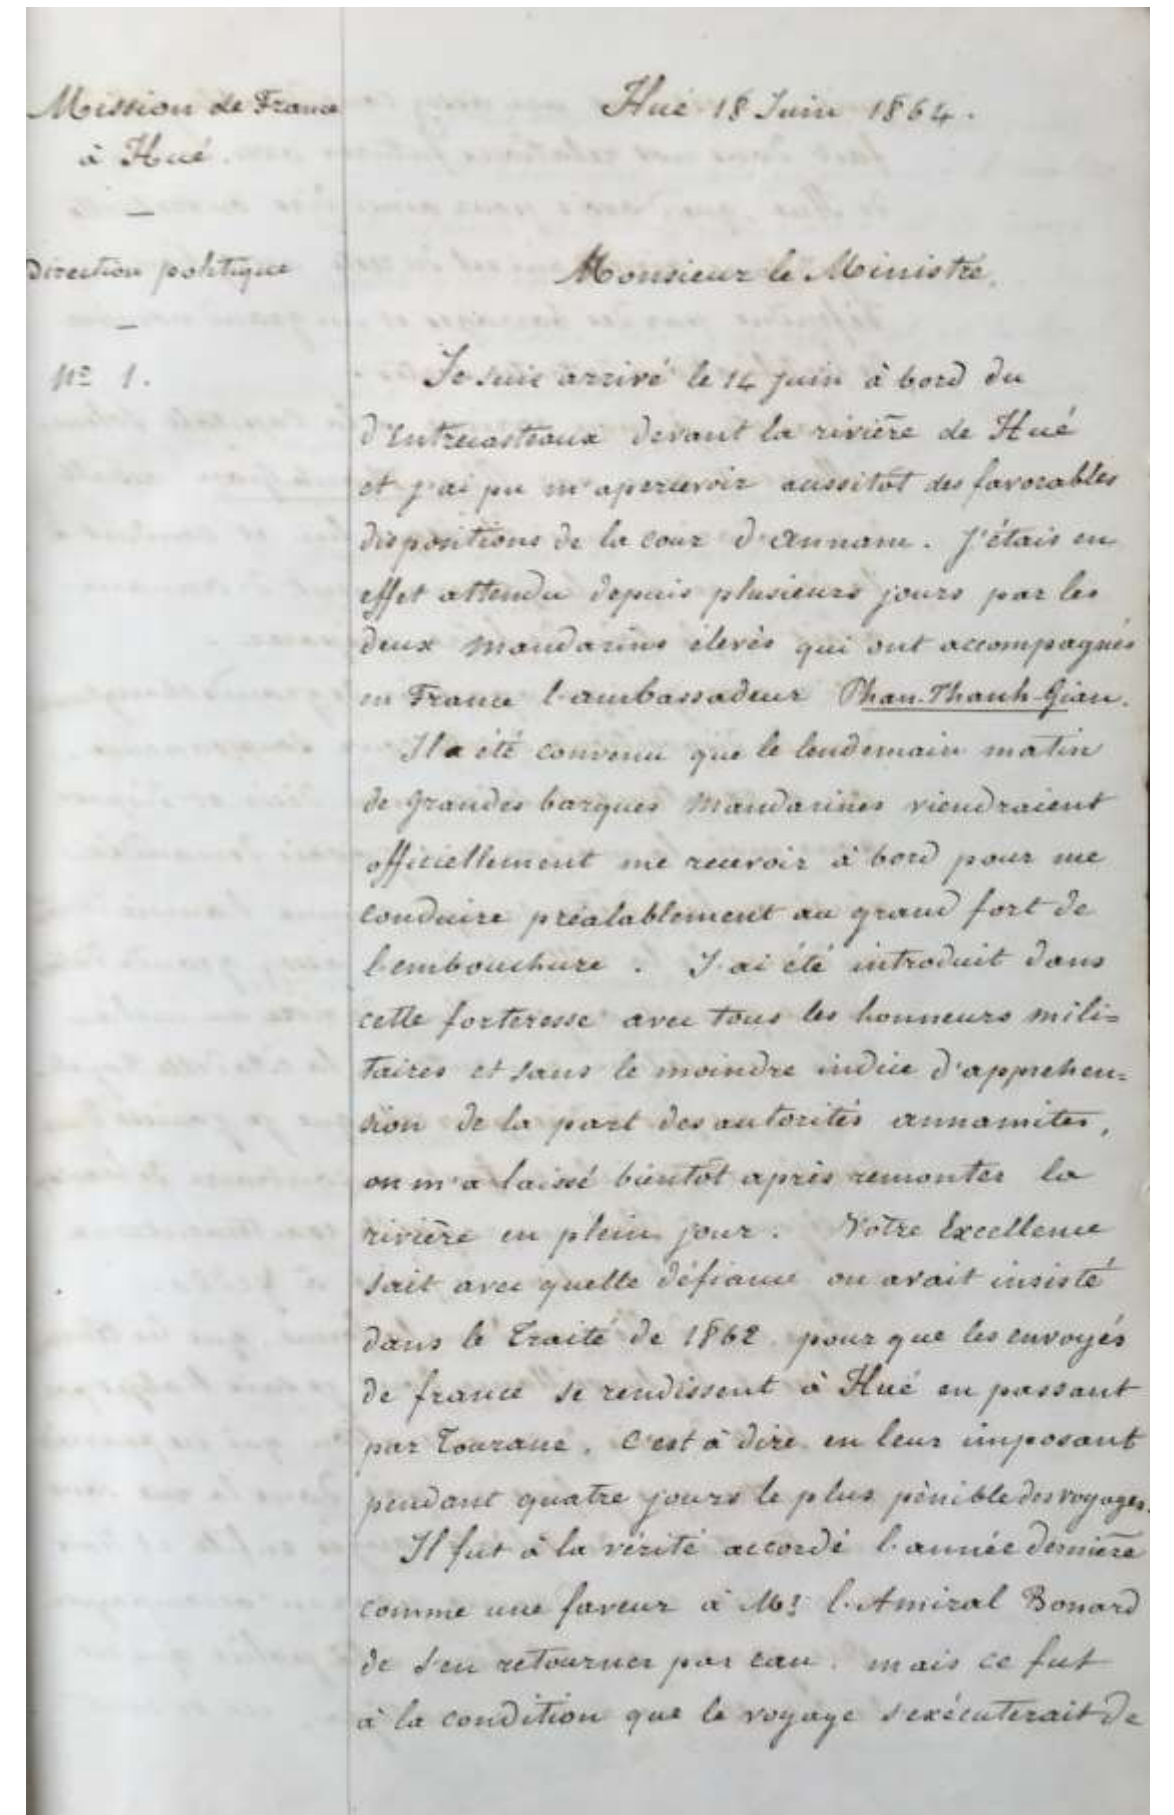 Mission de France
à Hué.
—
Direction politique
—
Nº 1.
Hué 18 Juin 1864.
Monsieur le Ministre,
Je suis arrivé le 14 juin à bord du
d'Entrecasteaux devant la rivière de Hué
et j'ai pu m'apercevoir aussitôt des favorables
dispositions de la cour d'Annam. J'étais en
effet attendu depuis plusieurs jours par les
deux Mandarins élevés qui ont accompagnés
en France l'ambassadeur Phan-Thanh-Gian.
Il a été convenu que le lendemain matin
de grandes barques Mandarines viendraient
officiellement me recevoir à bord pour me
conduire préalablement au grand fort de
l'embouchure. J'ai été introduit dans
cette forteresse avec tous les honneurs mili=
taires et sans le moindre indice d'appréhen=
sion de la part des autorités annamites,
on m'a laissé bientôt après remonter la
rivière en plein jour. Votre Excellence
sait avec quelle défiance on avait insisté
dans le Traité de 1862 pour que les envoyés
de france se rendissent à Hué en passant
par Tourane, c'est à dire en leur imposant
pendant quatre jours le plus pénible des voyages.
Il fut à la vérité accordé l'année dernière
comme une faveur à Mr l'Amiral Bonard
de s'en retourner par eau, mais ce fut
à la condition que le voyage s'exécuterait de